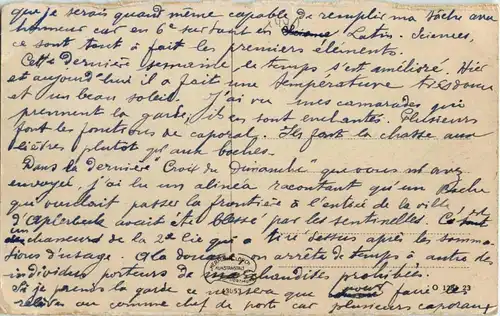 que je serais quand même capable de remplir ma tâche avec
honneur car en 6e surtout en Latin. Sciences,
ce sont tout à fait les premiers éléments.
Cette dernière semaine le temps s'est amélioré. Hier
et aujourd'hui il a fait une température très douce
et un beau soleil. J'ai vu mes camarades qui
prennent la garde, ils en sont enchantés. Plusieurs
font les fonctions de caporal. Ils font la chasse aux
lièvres plutôt qu'aux boches.
Dans la dernière "Croix du Dimanche" que vous m'avez
envoyée, j'ai lu un alinéa racontant qu'un Boche
qui voulait passer la frontière à l'entrée de la ville
d' avait été blessé par les sentinelles. C'est
un chasseur de la 2e Cie qui a tiré dessus après les somma-
tions d'usage. A la douane on arrête de temps à autre des
individus porteurs de marchandises prohibées.
Si je prends la garde ce ne sera que pour faire les
relèves ou comme chef de poste car plusieurs caporaux